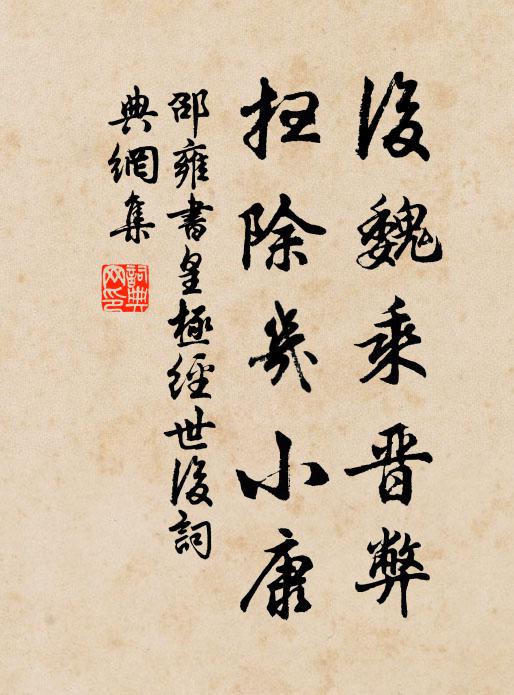 後魏乘晋弊
扫除幾小康
邵雍書皇極經世後詞
典網集
詞典網印